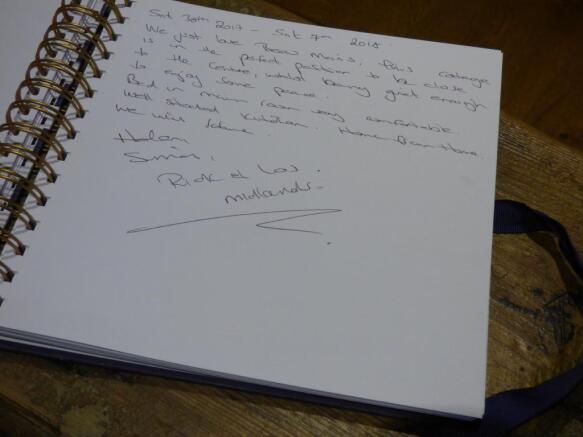 Sat 30th 2017 - Sat 7th 2018
We just love Beau Mons, this cottage
is in the perfect position to be close
to the centre, whilst being quiet enough
to enjoy some peace.
Bed in main room very comfortable
Well stocked kitchen. Home from Home.
We will return.
Helen
Simon,
Rick & Lou.
Midlands.